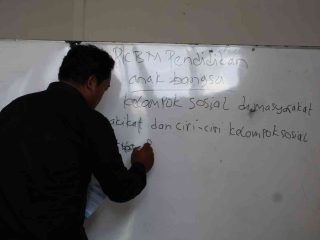 PKBM Pendidikan
anak bangsa
kelompok sosial di masyarakat
dan ciri-ciri kelompok sosial